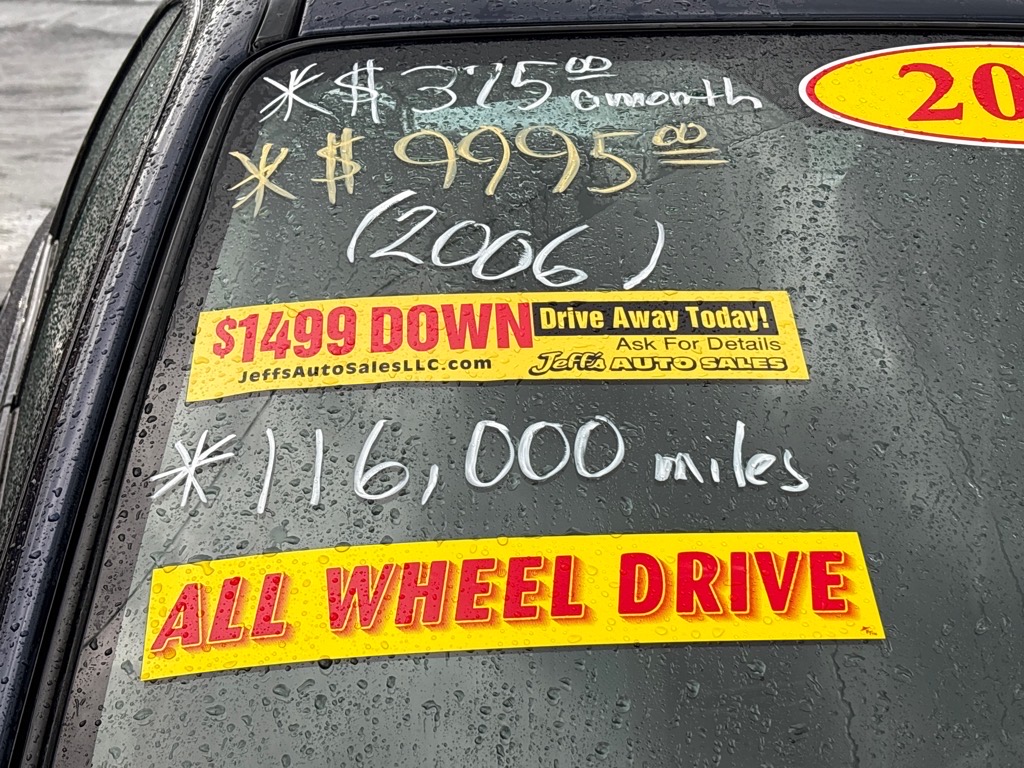 * $ 375.00 a month
20
* $ 9995.00
(2006)
$1499 DOWN Drive Away Today!
Ask For Details
JeffsAutoSalesLLC.com Jeff's AUTO SALES
* 116,000 miles
ALL WHEEL DRIVE